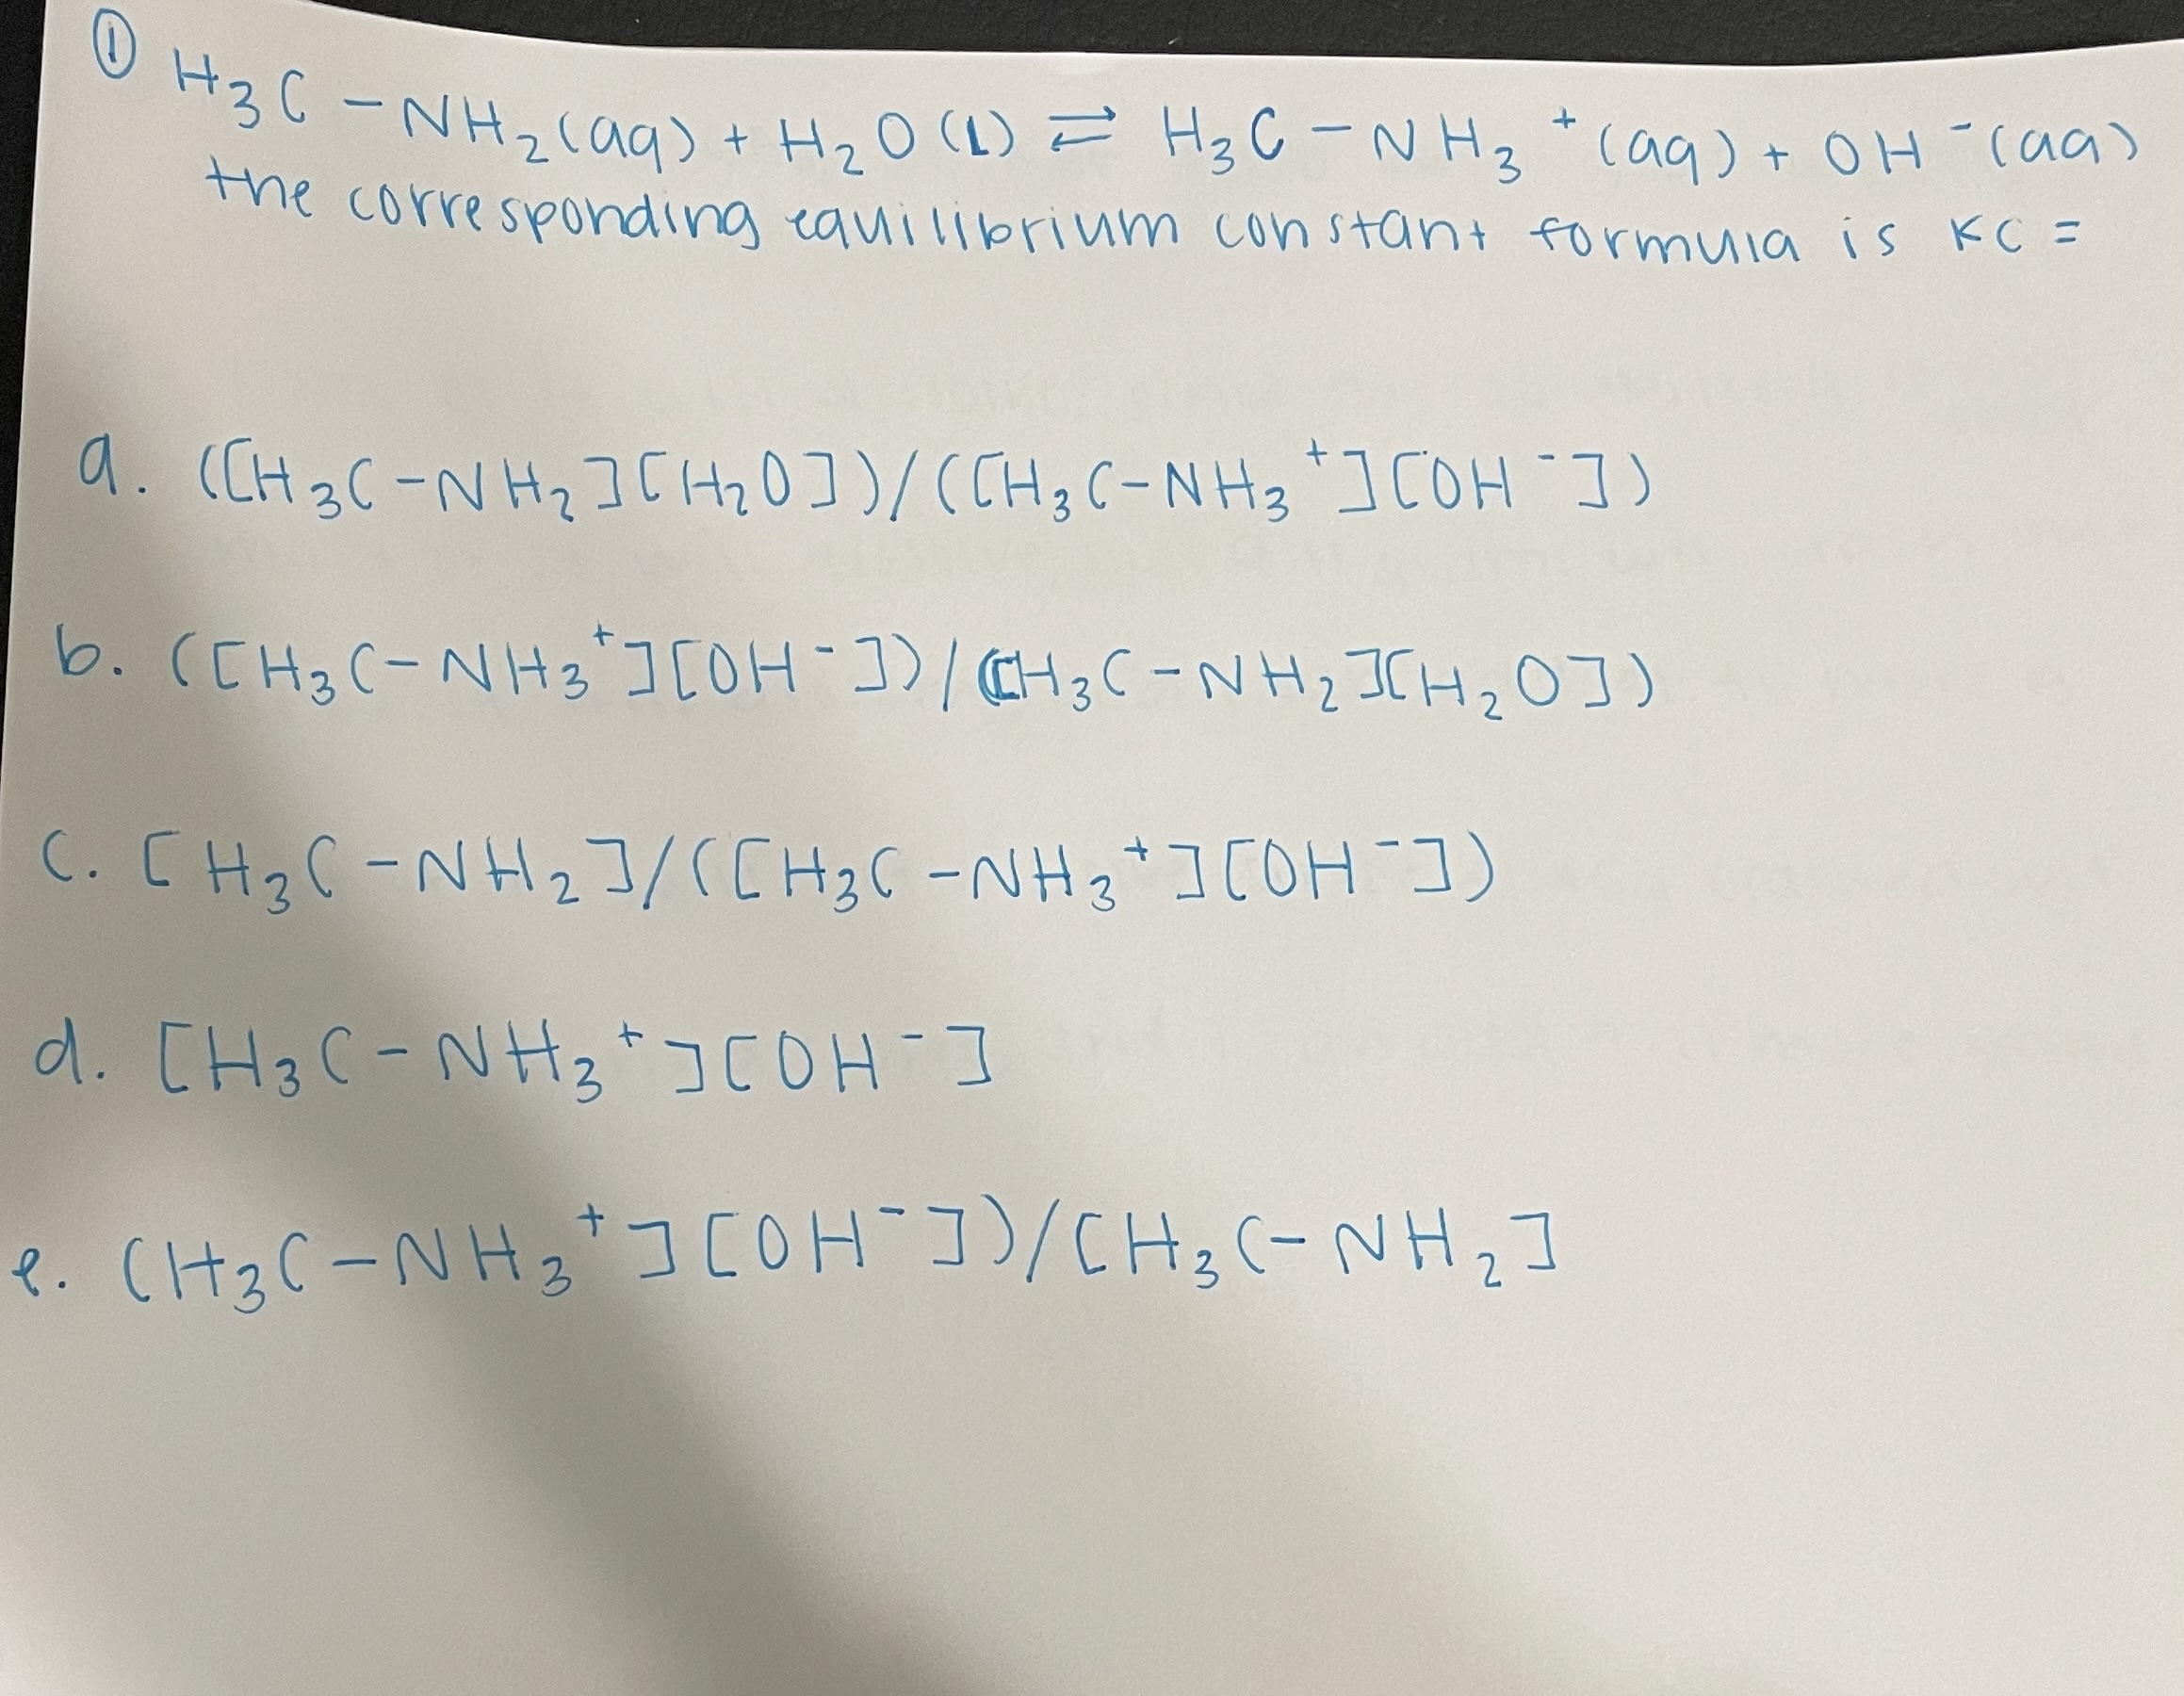 ① H₃C - NH₂(aq) + H₂O (l) ⇄ H₃C - NH₃⁺(aq) + OH⁻(aq)
the corresponding equilibrium constant formula is KC =
a. ([H₃C-NH₂][H₂O])/([H₃C-NH₃⁺][OH⁻])
b. ([H₃C-NH₃⁺][OH⁻])/([H₃C-NH₂][H₂O])
c. [H₃C-NH₂]/([H₃C-NH₃⁺][OH⁻])
d. [H₃C-NH₃⁺][OH⁻]
e. (H₃C-NH₃⁺][OH⁻])/[H₃C-NH₂]